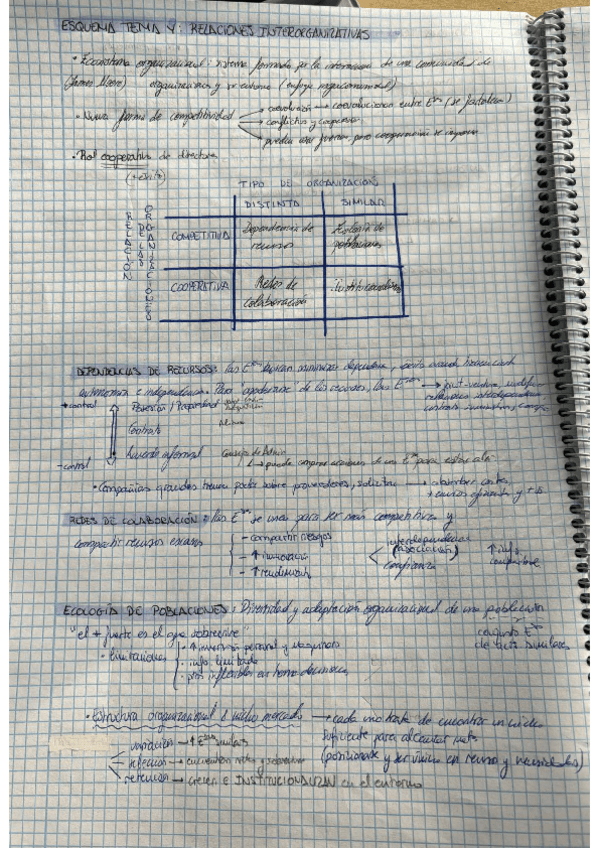 ESQUEMA TEMA 4: RELACIONES INTERORGANIZATIVAS
• Ecosistema organizacional: sistema formado por la interacción de una comunidad de
(James Moore) organizaciones y su entorno
• Nueva forma de competitividad → coevolución → coevolucionan entre Eˢᵃˢ (se fortalecen)
→ conflictos y cooperación
→ pueden usar fuerzas para
• Rol cooperativo de directora
(+ éxito)
TIPO DE ORGANIZACIÓN
DISTINTA SIMILAR
RELACIÓN DE LAS ORGANIZACIONES
COMPETITIVA Dependencia de recursos Ecología de poblaciones
COOPERATIVA Redes de colaboración Institucionalismo
DEPENDENCIAS DE RECURSOS: las Eˢᵃˢ buscan minimizar dependencia,
autonomía e independencia. Para "apoderarse" de los recursos, las Eˢᵃˢ → joint-venture,
+ control Posesión / Propiedad
Contrato Alianza
- control Acuerdo informal Consejo de Admin
→ puede comprar acciones de una Eˢᵃ para estar ahí
• Compañías grandes tienen poder sobre proveedores, solicitar → absorber costes,
+ envíos eficientes y
REDES DE COLABORACIÓN: las Eˢᵃˢ se unen para ser más competitivas y
compartir recursos escasos
- compartir riesgos
- ↑ innovación
- ↑ rendimiento
interdependencia (asociación)
confianza
↑ info compartida
ECOLOGÍA DE POBLACIONES: Diversidad y adaptación organizacional de una población
"el + fuerte es el que sobrevive"
conjunto Eˢᵃˢ
de act. similares
• limitaciones
• ↑ inversión personal y maquinaria
• info. limitada
• inflexibles en toma decisiones
• Estructura organizacional e nicho mercado → cada una trata de encontrar un nicho
suficiente para alcanzar meta
(posicionarse y ser único en recursos y necesidades)
variación → ↑ Eˢᵃˢ similares
selección → encuentran nicho y sobreviven
retención → crecen e INSTITUCIONALIZAN en el entorno